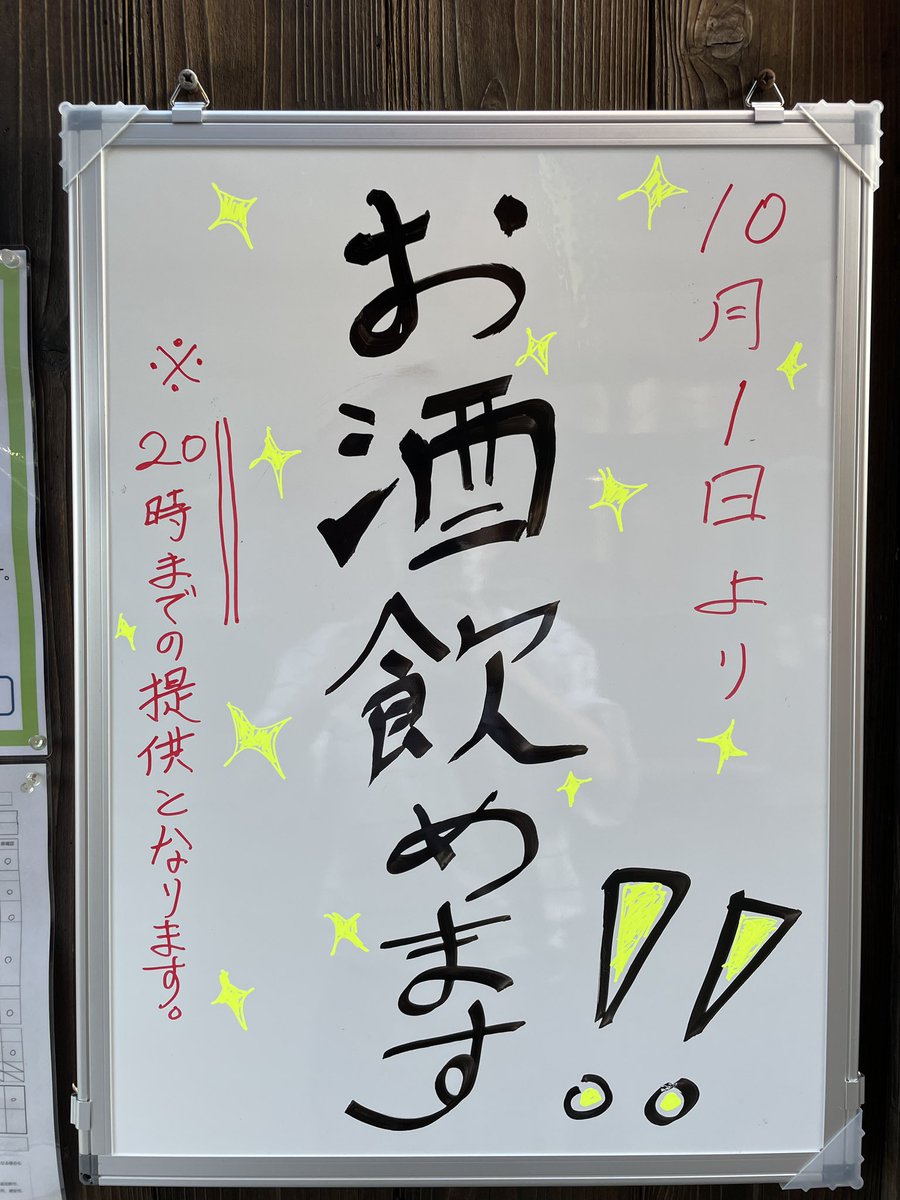 10月1日より
お酒飲めます!!
※20時までの提供となります。